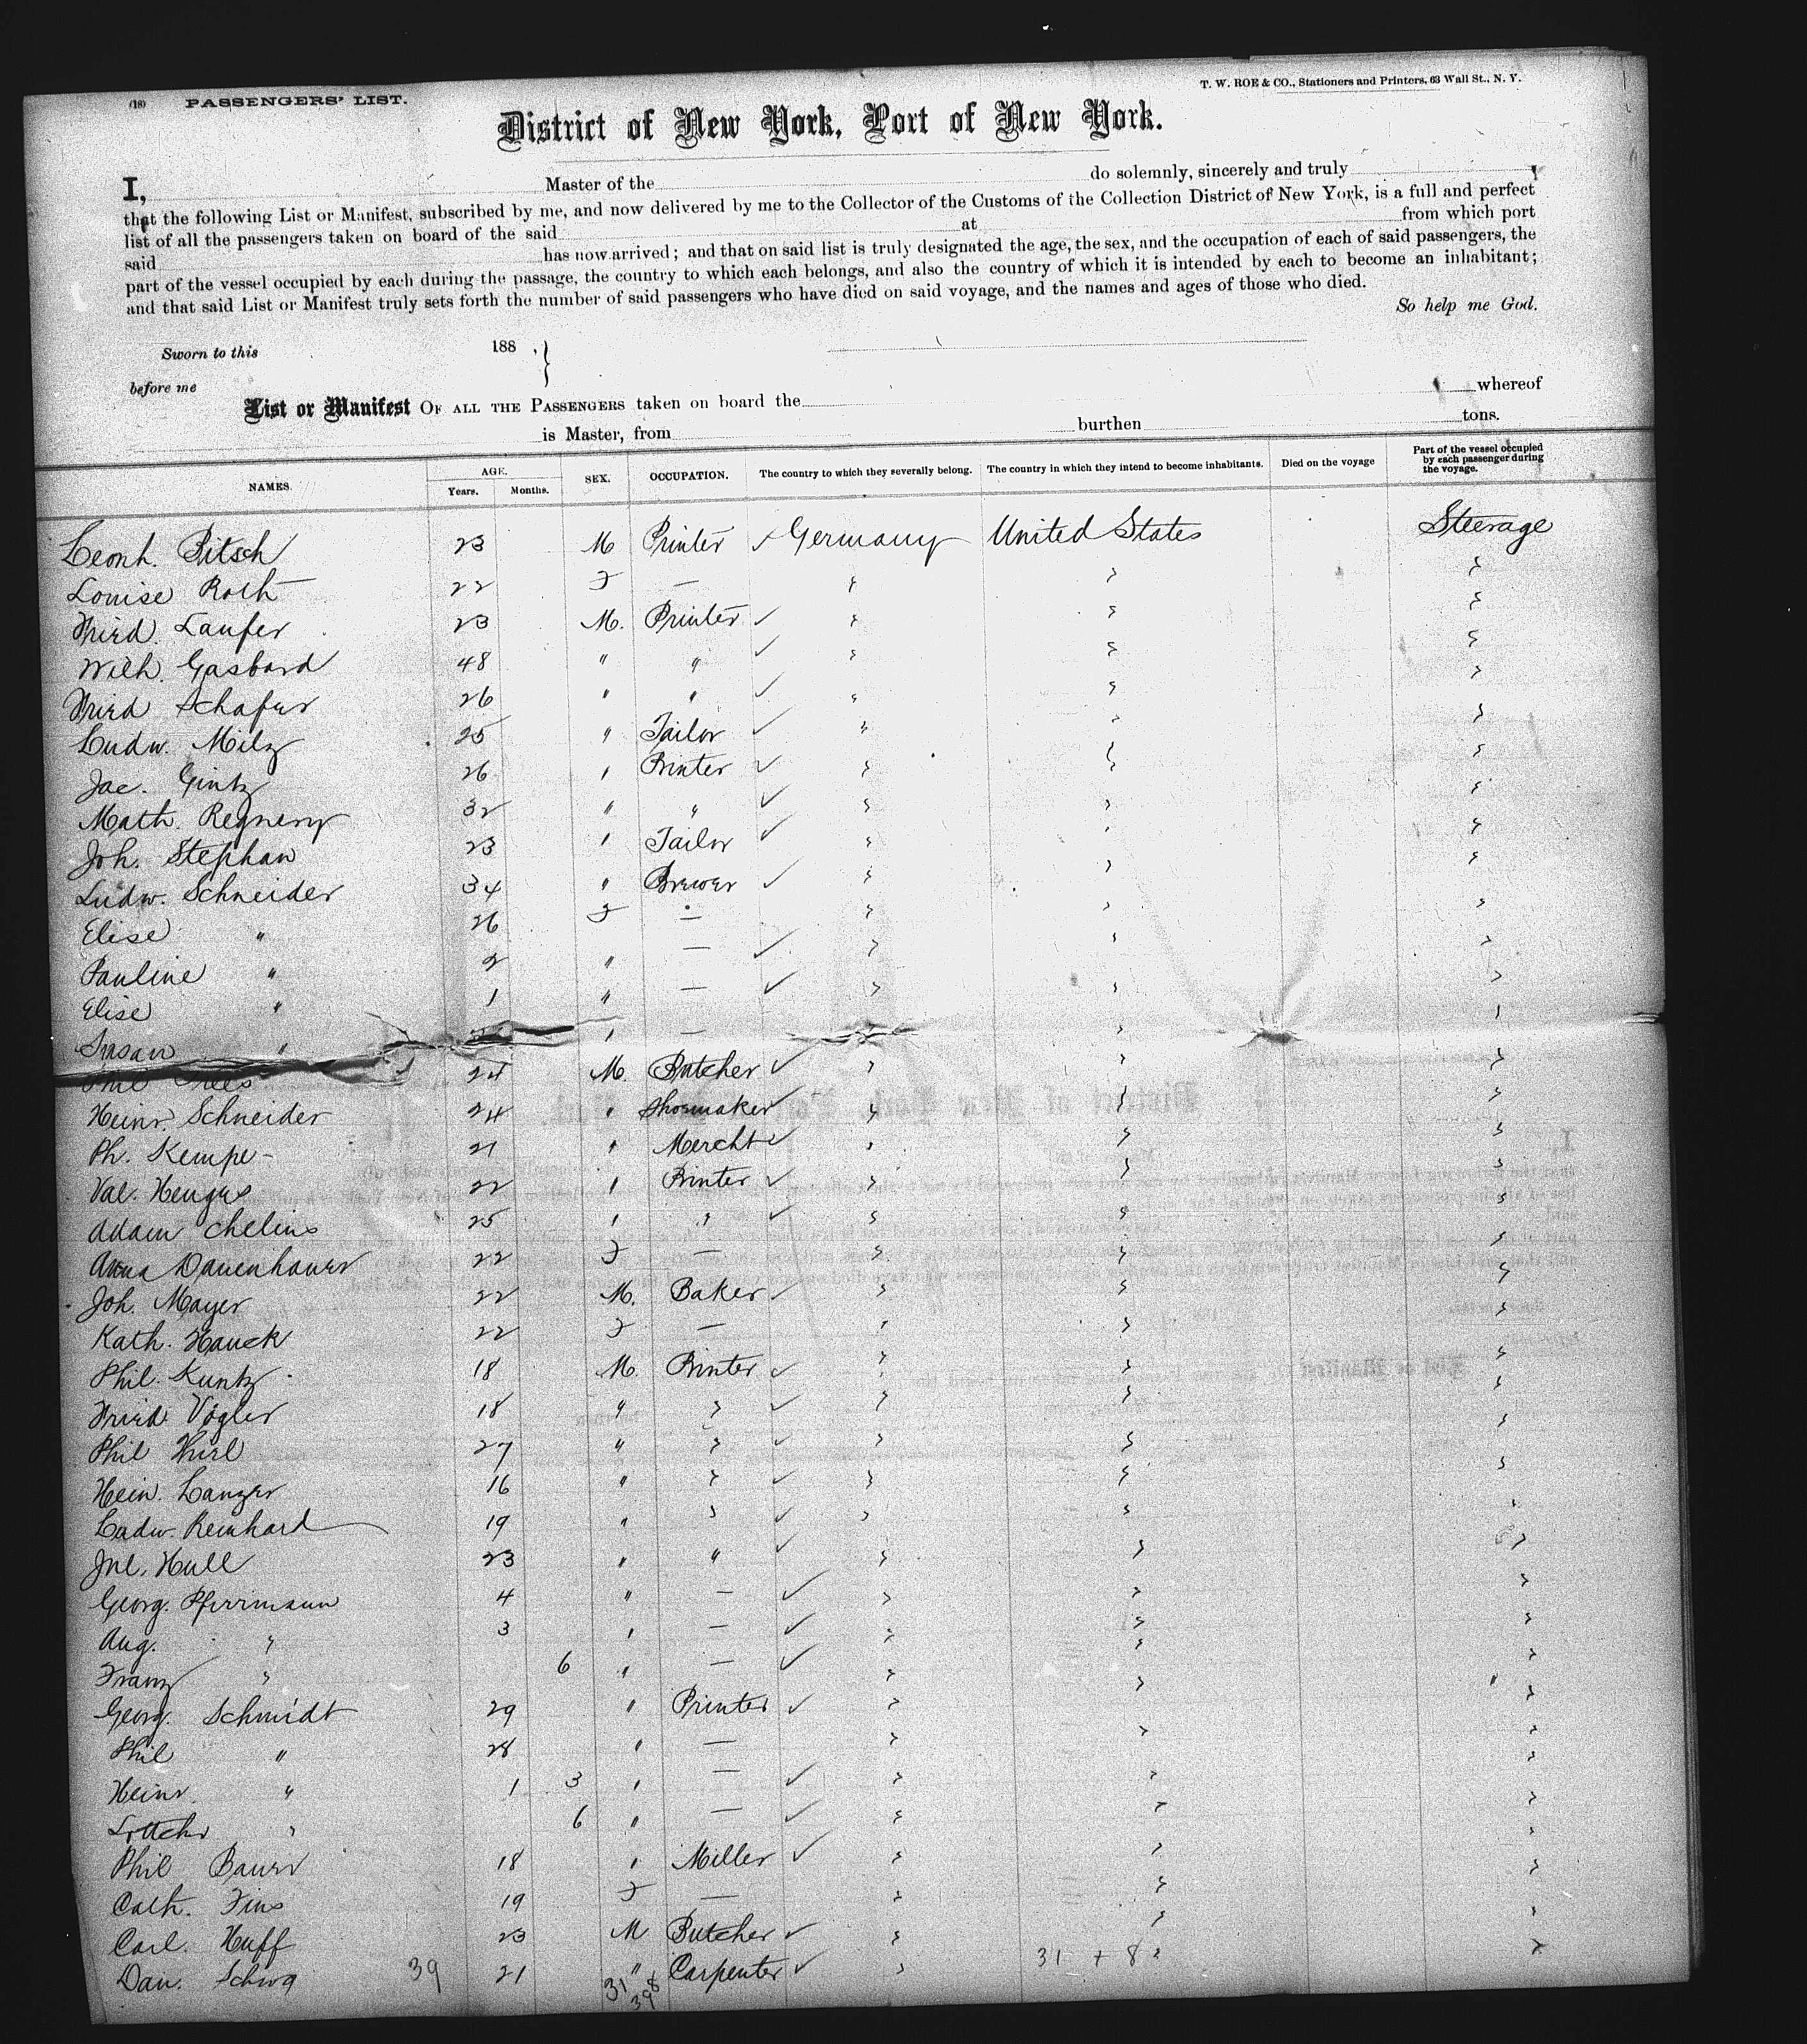 (18) PASSENGERS' LIST.
T. W. ROE & CO., Stationers and Printers, 63 Wall St., N. Y.
District of New York, Port of New York.
I, Master of the do solemnly, sincerely and truly
that the following List or Manifest, subscribed by me, and now delivered by me to the Collector of the Customs of the Collection District of New York, is a full and perfect
list of all the passengers taken on board of the said at from which port
said has now arrived; and that on said list is truly designated the age, the sex, and the occupation of each of said passengers, the
part of the vessel occupied by each during the passage, the country to which each belongs, and also the country of which it is intended by each to become an inhabitant;
and that said List or Manifest truly sets forth the number of said passengers who have died on said voyage, and the names and ages of those who died.
So help me God.
Sworn to this 188 ,
before me
List or Manifest OF ALL THE PASSENGERS taken on board the whereof
is Master, from burthen tons.
NAMES. AGE. Years. Months. SEX. OCCUPATION. The country to which they severally belong. The country in which they intend to become inhabitants. Died on the voyage Part of the vessel occupied by each passenger during the voyage.
Leonh. Bitsch 23 M Printer ✓ Germany United States Steerage
Louise Roth 22 F — " " "
Fried. Laufer 23 M. Printer ✓ " " "
Wilh. Gasbard 48 " " ✓ " " "
Fried Schafer 26 " " ✓ " " "
Ludw. Milz 25 " Tailor ✓ " " "
Jac. Gintz 26 " Printer ✓ " " "
Math. Regnery 32 " " ✓ " " "
Joh. Stephan 23 " Tailor ✓ " " "
Ludw. Schneider 34 " Brewer ✓ " " "
Elise " 26 F — " " "
Pauline " 2 " — ✓ " " "
Elise " 1 " — ✓ " " "
Susan " " — " " "
Phil 24 M. Butcher ✓ " " "
Heinr. Schneider 24 " Shoemaker ✓ " " "
Ph. Kempe 21 " Mercht ✓ " " "
Val. Hengus 22 " Printer ✓ " " "
Adam Chelius 25 " " ✓ " " "
Anna Dauenhauer 22 F — " " "
Joh. Mayer 22 M. Baker ✓ " " "
Kath. Hauck 22 F — " " "
Phil. Kuntz 18 M. Printer ✓ " " "
Fried. Vogler 18 " " ✓ " " "
Phil 27 " " ✓ " " "
Hein. Lanzer 16 " " ✓ " " "
Ludw. Reinhard 19 " " ✓ " " "
Jul. Hull 23 " " ✓ " " "
Georg. Pfirrmann 4 " — ✓ " " "
Aug. " 3 " — ✓ " " "
Franz " 6 " — ✓ " " "
Georg. Schmidt 29 " Printer ✓ " " "
Phil " 28 " — " " "
Heinr. " 1 3 " — ✓ " " "
" 6 " — ✓ " " "
Phil Bauer 18 " Miller ✓ " " "
Cath. Fins 19 F — " " "
Carl. Huff 23 M Butcher ✓ " " "
Dan. 39 21 " Carpenter ✓ " 31 + 8 " "
31 8
39